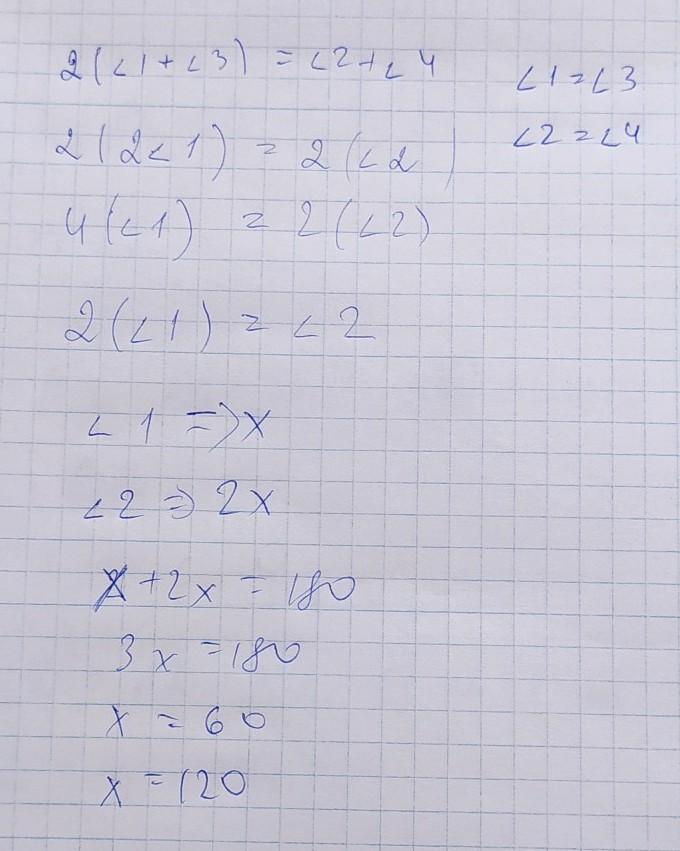 2(∠1+∠3) = ∠2+∠4
∠1=∠3
∠2=∠4
2(2∠1) = 2(∠2)
4(∠1) = 2(∠2)
2(∠1) = ∠2
∠1 => x
∠2 => 2x
x+2x = 180
3x = 180
x = 60
x = 120